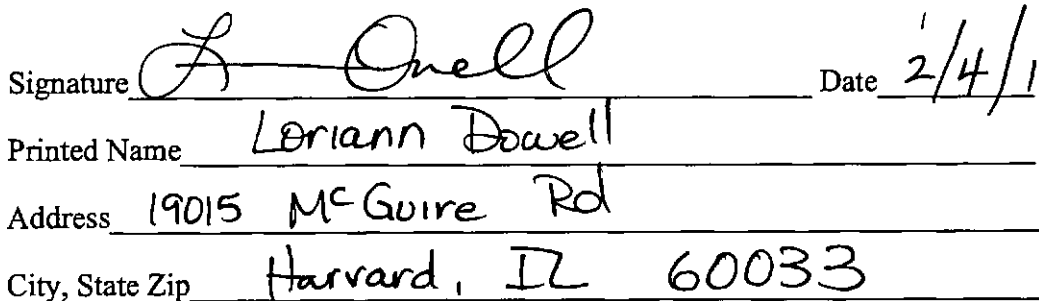 Signature L Dowell Date 2/4/1
Printed Name Loriann Dowell
Address 19015 McGuire Rd
City, State Zip Harvard, IL 60033